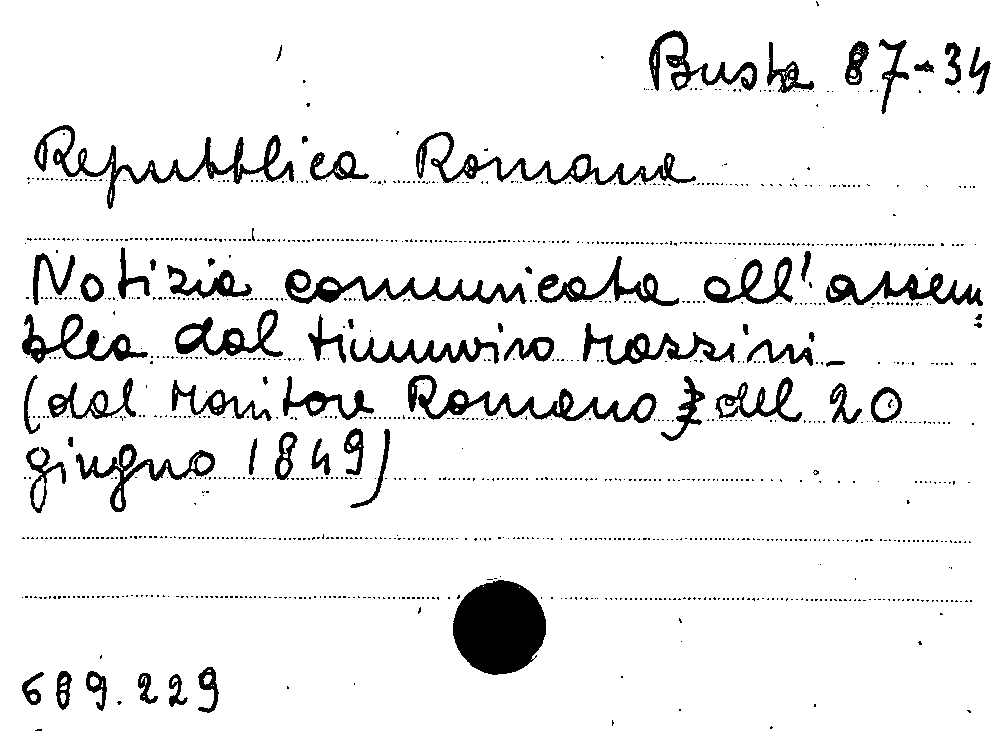 Busta 87-34
Repubblica Romana
Notizia comunicata all'assem=
blea dal triumviro Mazzini-
(dal Monitore Romano del 20
giugno 1849)
689.229